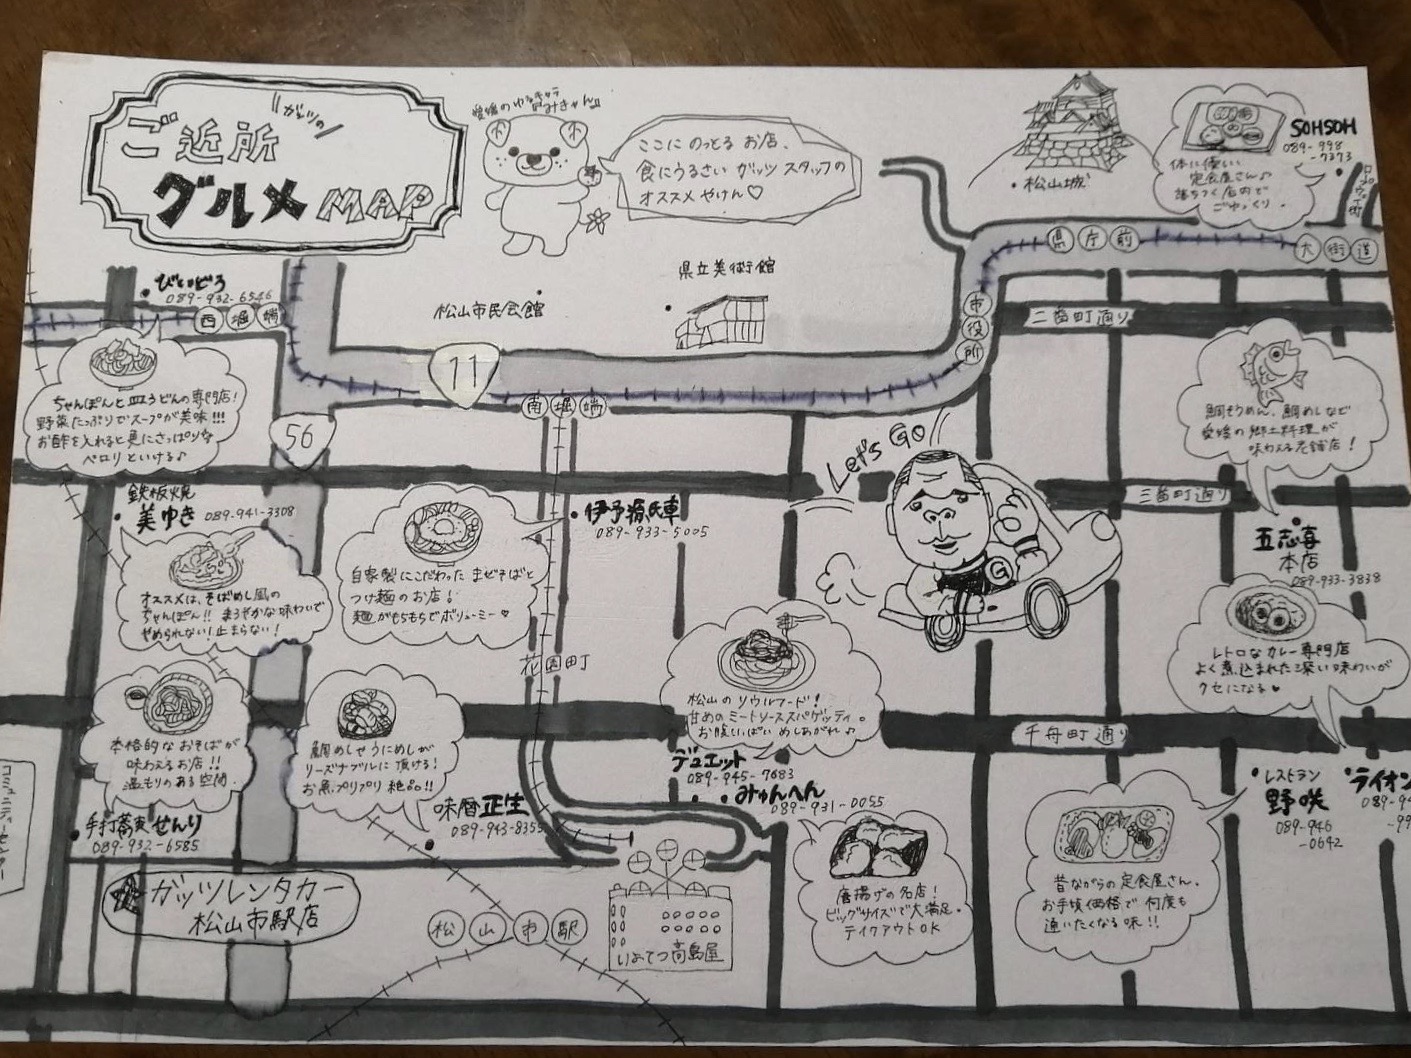 ガッツの
ご近所
グルメMAP
愛媛のゆるキャラ
みきゃん
ここにのっとるお店、
食にうるさいガッツスタッフの
オススメやけん♡
松山城
体に優しい
定食屋さん♪
落ちつく店内で
ごゆっくり。
SOHSOH
089-998
-7373
ロープウェイ街
県庁前
大街道
県立美術館
松山市民会館
市役所
二番町通り
びいどろ
089-932-6546
西堀端
11
南堀端
ちゃんぽんと皿うどんの専門店!
野菜たっぷりでスープが美味!!!
お酢を入れると更にさっぱり
ペロリといける♪
56
鯛そうめん、鯛めしなど
愛媛の郷土料理が
味わえる老舗店!
Let's GO
三番町通り
鉄板焼
美ゆき 089-941-3308
伊予源氏車
089-933-5005
五志喜
本店
089-933-3838
オススメは、そばめし風の
ちゃんぽん!! まろやかな味わいで
やめられない!止まらない!
自家製にこだわったまぜそばと
つけ麺のお店!
麺がもちもちでボリューミー♥
G
レトロなカレー専門店
よく煮込まれた深い味わいが
クセになる♥
花園町
松山のソウルフード!
甘めのミートソーススパゲッティ。
お腹いっぱいめしあがれ♪
本格的なおそばが
味わえるお店!!
温もりのある空間。
鯛めしやうにめしが
リーズナブルに頂ける!
お魚プリプリ絶品!!
千舟町通り
デュエット
089-945-7683
みゅんへん
089-931-0055
レストラン
野咲
089-946
-0642
ライオン
手打蕎麦せんり
089-932-6585
味暦正生
089-943-8355
コミュニティーセンター
唐揚げの名店!
ビッグサイズで大満足。
テイクアウトOK
昔ながらの定食屋さん。
お手頃価格で何度も
通いたくなる味!!
ガッツレンタカー
松山市駅店
松山市駅
いよてつ高島屋